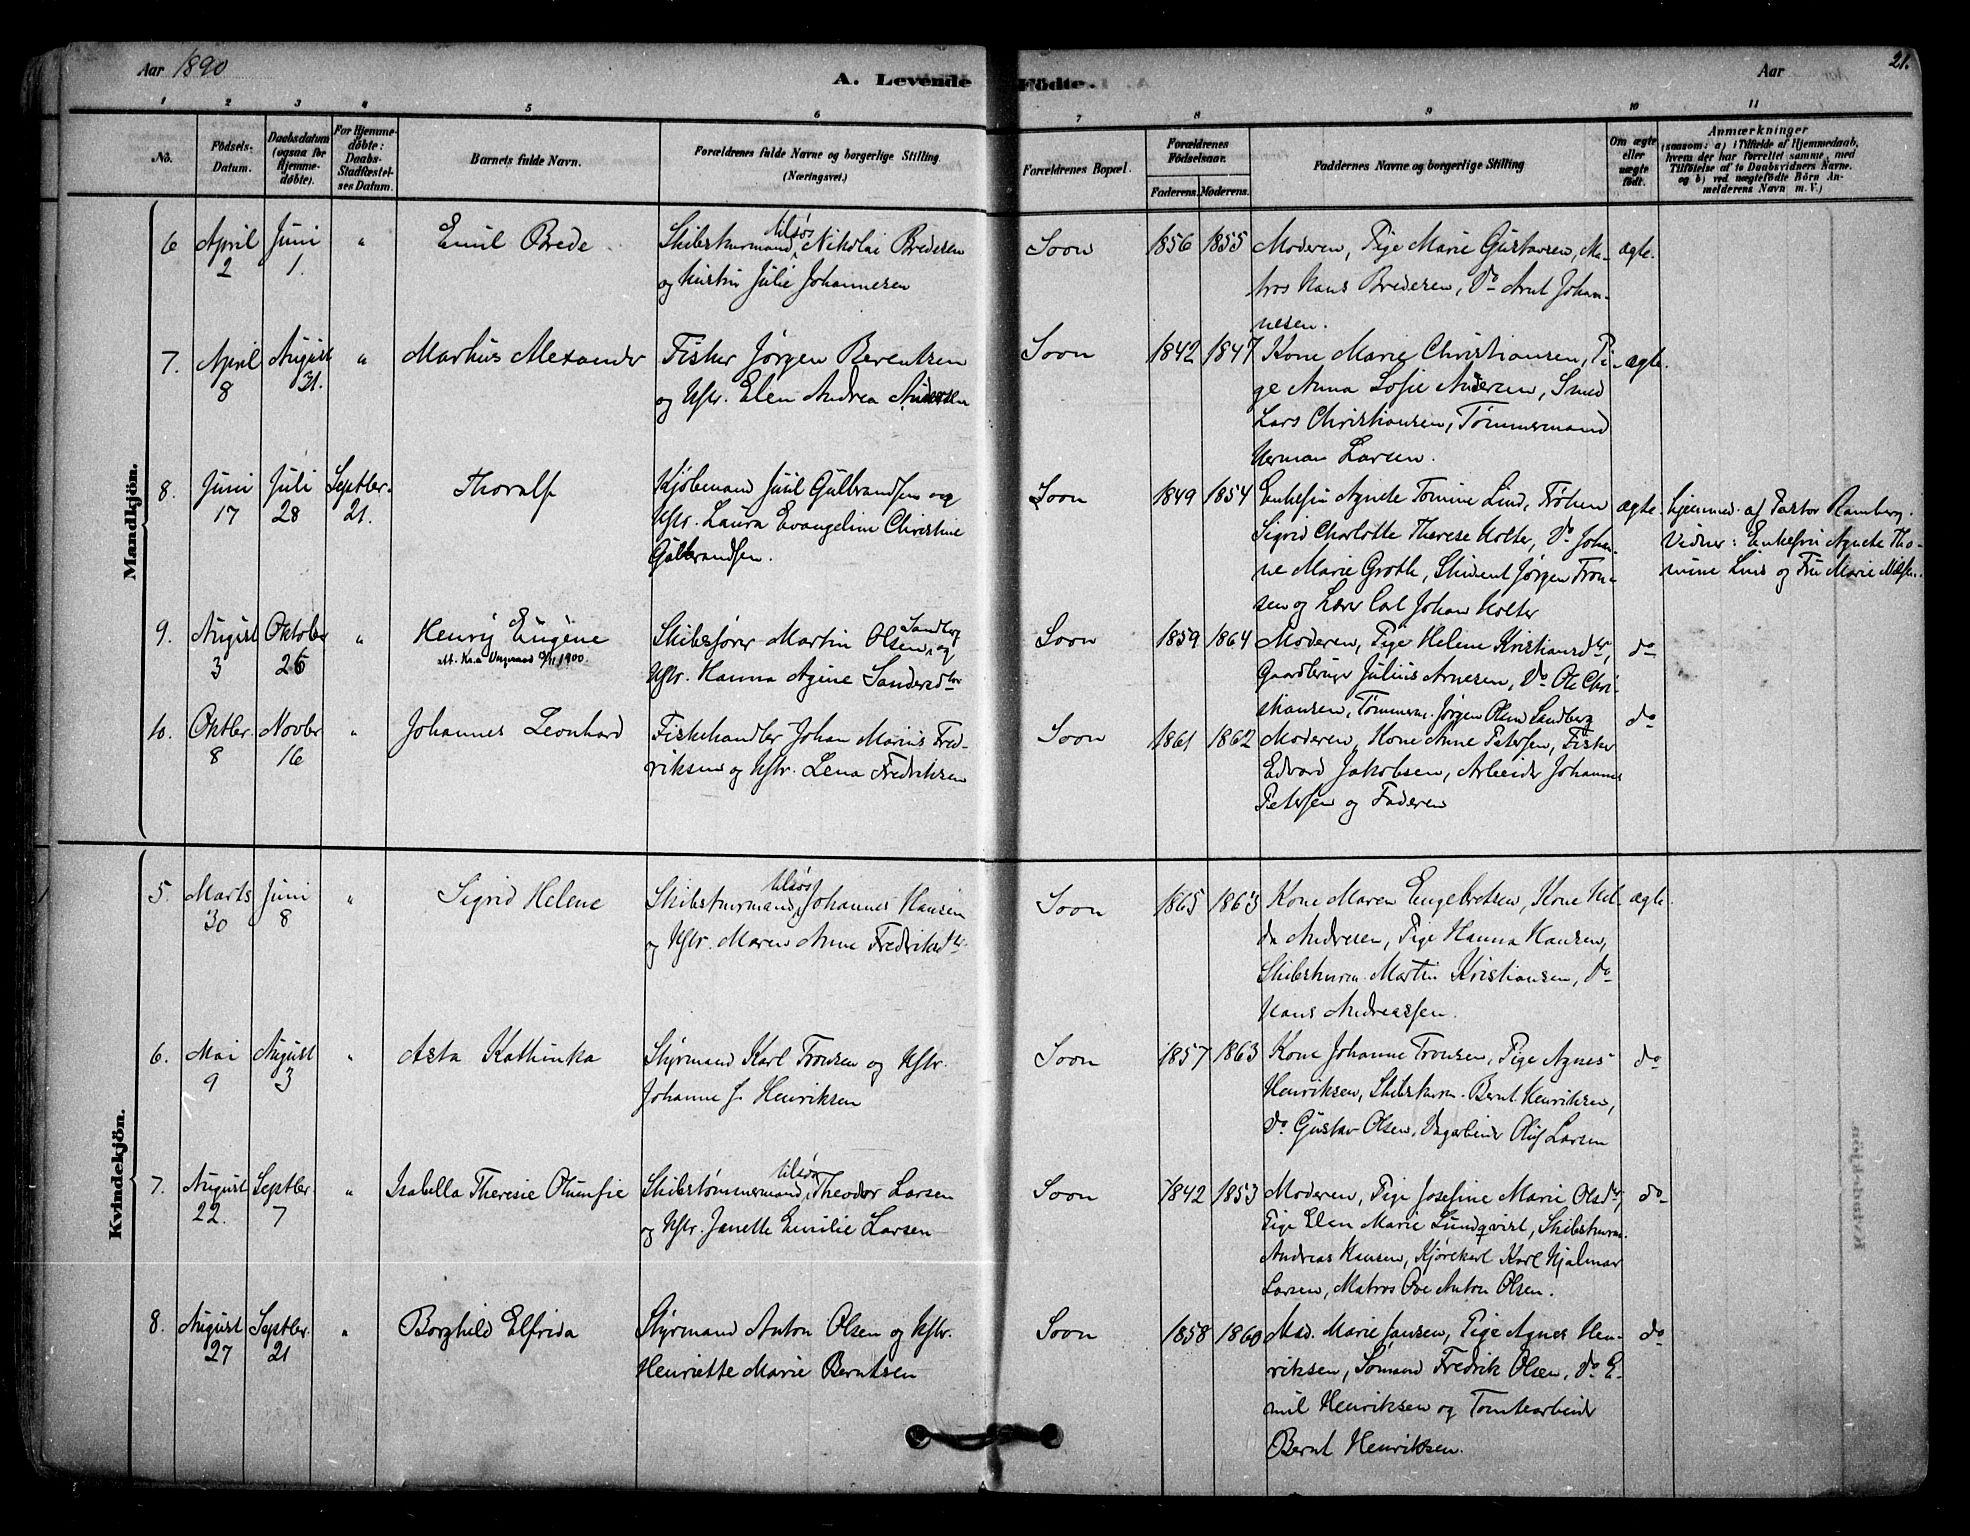 Aar 1890
A. Levende Födte.
Aar
21.
1 2 3 4 5 6 7 8 9 10 11
No.
Födsels-
Datum.
Daabsdatum
(ogsaa for
Hjemme-
døbte).
For Hjemme-
døbte:
Daabs-
Stadfæstel-
ses Datum.
Barnets fulde Navn.
Forældrenes fulde Navne og borgerlige Stilling
(Næringsvei.)
Forældrenes Bopæl.
Forældrenes
Födselsaar.
Faderens. Moderens.
Faddernes Navne og borgerlige Stilling
Om ægte
eller
uægte
födt.
Anmærkninger
(saasom: a) i Tilfælde af Hjemmedaab,
hvem der har forrettet samme, med
Tilföielse af to Daabsvidners Navne.
og b) ved uægtefödte Börn An-
melderens Navn m. V.)
Mandkjön.
6 April
2
Juni
1.
"
Emil Brede
Skibsturmand, tilsøs Nikolai Bredesen
og Hustru Julie Johannesen
Soon
1856 1855
Moderen, Pige Marie Gustavsen, Ma-
tros Hans Bredesen, do Arnt Johan-
nesen.
ægte.
7. April
8
August
31.
"
Markus Alexander
Fisker Jørgen Berentsen
og Hstr. Elen Andrea Andersen
Soon
1842 1847
Kone Marie Christiansen, Pi-
ge Anna Sofie Andersen, Smed
Lars Christiansen, Tømmermand
Herman Larsen.
ægte.
8. Juni
17
Juli
28
Septbr.
21.
Thoralf
Kjøbmand Juul Gulbrandsen og
Hstr. Laura Evangeline Christine
Gulbrandsen.
Soon
1849 1854
Enkefru Agnete Tomine Lund, Frøken
Sigrid Charlotte Therese Holter, do Johan-
ne Marie Groth, Student Jørgen Tron-
sen og Lærer Carl Johan Holter
ægte.
hjemmed. af Pastor Ramberg.
Vidner: Enkefru Agnete Tho-
mine Lund og Fru Marie Nilsen.
9. August
3
Oktober
26
"
Henrij Eugene
att. Kra 1900.
Skibsfører Martin Olsen Sandberg, og
Hstr. Hanna Agine Sandersdtr
Soon
1859 1864
Moderen, Pige Helene Kristiansdtr,
Gaardbruger Julius Arnesen, do Ole Chri-
stiansen, Tømmerm. Jørgen Olsen Sandberg
do
10. Oktbr.
8
Novbr
16
"
Johannes Leonhard
Fiskehandler Johan Marius Fred-
riksen og Hstr. Lena Fredriksen
Soon
1861 1862
Moderen, Kone Anne Petersen, Fisker
Edvard Jakobsen, Arbeider Johannes
Petersen og Faderen
do
Kvindekjön.
5. Marts
30
Juni
8
"
Sigrid Helene
Skibsturmand, tilsøs Johannes Hansen
og Hstr. Maren Anne Fredriksdtr.
Soon
1865 1863
Kone Maren Engebretsen, Kone Hil-
da Andresen, Pige Hanna Hansen,
Skibsturm. Martin Kristiansen, do
Hans Andreassen.
ægte
6. Mai
9
August
3
"
Asta Kathinka
Styrmand Karl Tronsen og Hstr.
Johanne J. Henriksen
Soon
1857 1863
Kone Johanne Tronsen, Pige Agnes
Henriksen, Skibsturm. Bernt Henriksen,
do Gustav Olsen, Oluf Larsen
do
7. August
22.
Septbr.
7
"
Isabella Theresie Olumfie
Skibstømmermand, tilsøs Theodor Larsen
og Hstr. Janette Emilie Larsen
Soon
1842 1853
Moderen, Pige Josefine Marie Olsdtr,
Pige Elen Marie Lundqvist, Skibsturm.
Andreas Hansen, Kjørekarl Karl Hjalmar
Larsen, Matros Ove Anton Olsen.
do
8. August
27
Septbr.
21
"
Borghild Elfrida
Styrmand Anton Olsen og Hstr.
Henriette Marie Berntsen
Soon
1858 1860
Mad. Marie Jansen, Pige Agnes Hen-
riksen, Sømand Fredrik Olsen, do E-
mil Henriksen og Tomtearbeider
Bernt Henriksen.
do